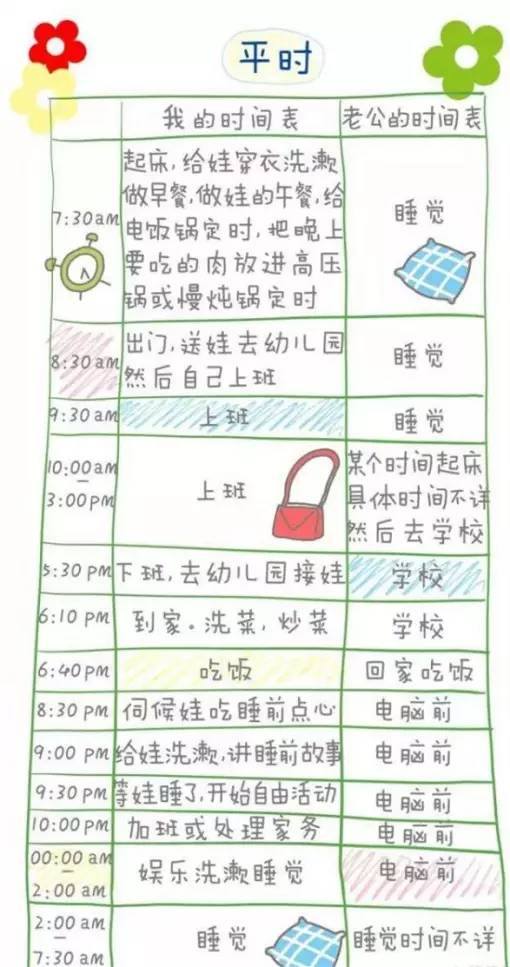 平时
我的时间表 老公的时间表
7:30am
起床,给娃穿衣洗漱
做早餐,做娃的午餐,给
电饭锅定时,把晚上
要吃的肉放进高压
锅或慢炖锅定时
睡觉
8:30am
出门,送娃去幼儿园
然后自己上班
睡觉
9:30am 上班 睡觉
10:00am
3:00pm
上班
某个时间起床
具体时间不详
然后去学校
5:30pm 下班,去幼儿园接娃 学校
6:10pm 到家。洗菜,炒菜 学校
6:40pm 吃饭 回家吃饭
8:30pm 伺候娃吃睡前点心 电脑前
9:00pm 给娃洗漱,讲睡前故事 电脑前
9:30pm 等娃睡了,开始自由活动 电脑前
10:00pm 加班或处理家务 电脑前
00:00am
2:00am
娱乐洗漱睡觉 电脑前
2:00am
7:30am
睡觉 睡觉时间不详